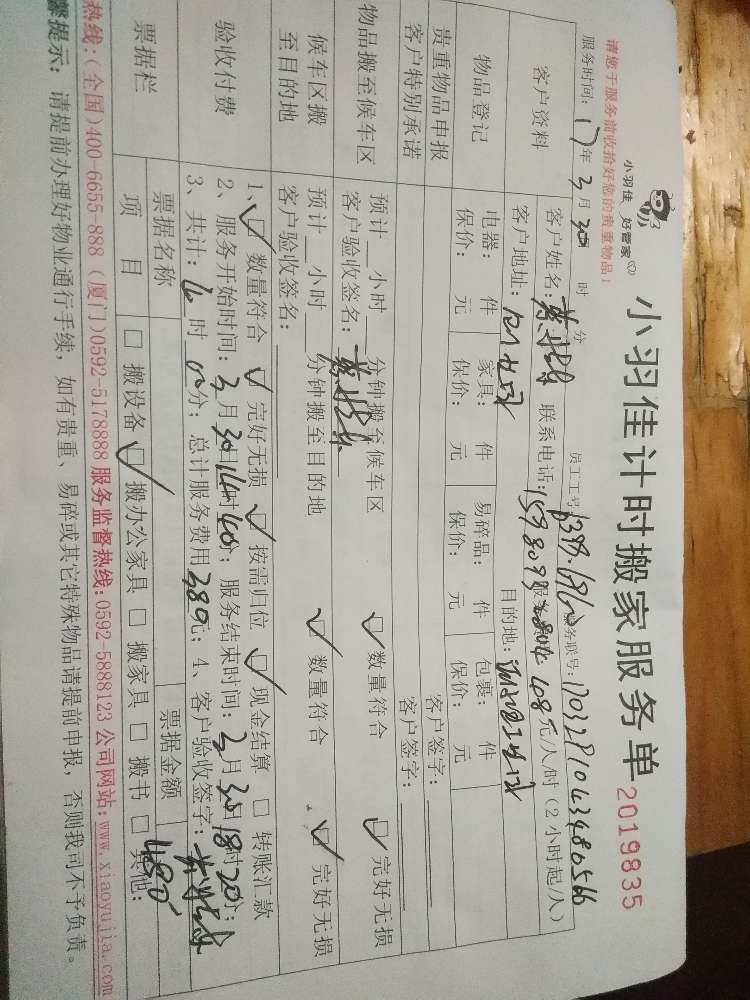 小羽佳 好管家
小羽佳计时搬家服务单 2019835
请您于服务前收拾好您的贵重物品！
员工工号 服务联号：1703291043480566
服务时间：17年3月30日 时 分
客户资料
客户姓名： 联系电话： 服务 元/人/时（2小时起/人）
客户地址： 目的地：
物品登记
电器： 件 家具： 件 易碎品： 件 包裹： 件
保价： 元 保价： 元 保价： 元 保价： 元
贵重物品申报 客户签字：
客户特别承诺 客户签字：
物品搬至候车区
预计 小时 分钟搬至候车区 数量符合 完好无损
客户验收签名：
候车区搬至目的地
预计 小时 分钟搬至目的地 数量符合 完好无损
客户验收签名：
验收付费
1、 数量符合 完好无损 按需归位 现金结算 □ 转账汇款
2、服务开始时间：3月30日14时40分；服务结束时间：3月30日18时20分；
3、共计： 时 分；总计服务费用 元；4、客户验收签字：
票据栏
票据名称 票据金额 480
项 目 □ 搬设备 搬办公家具 □ 搬家具 □ 搬书 □ 其他：
热线：(全国)400-6655-888 (厦门)0592-5178888 服务监督热线：0592-5888123 公司网站：www.xiaoyujia.com
馨提示：请提前办理好物业通行手续，如有贵重、易碎或其它特殊物品请提前申报，否则我司不予负责。